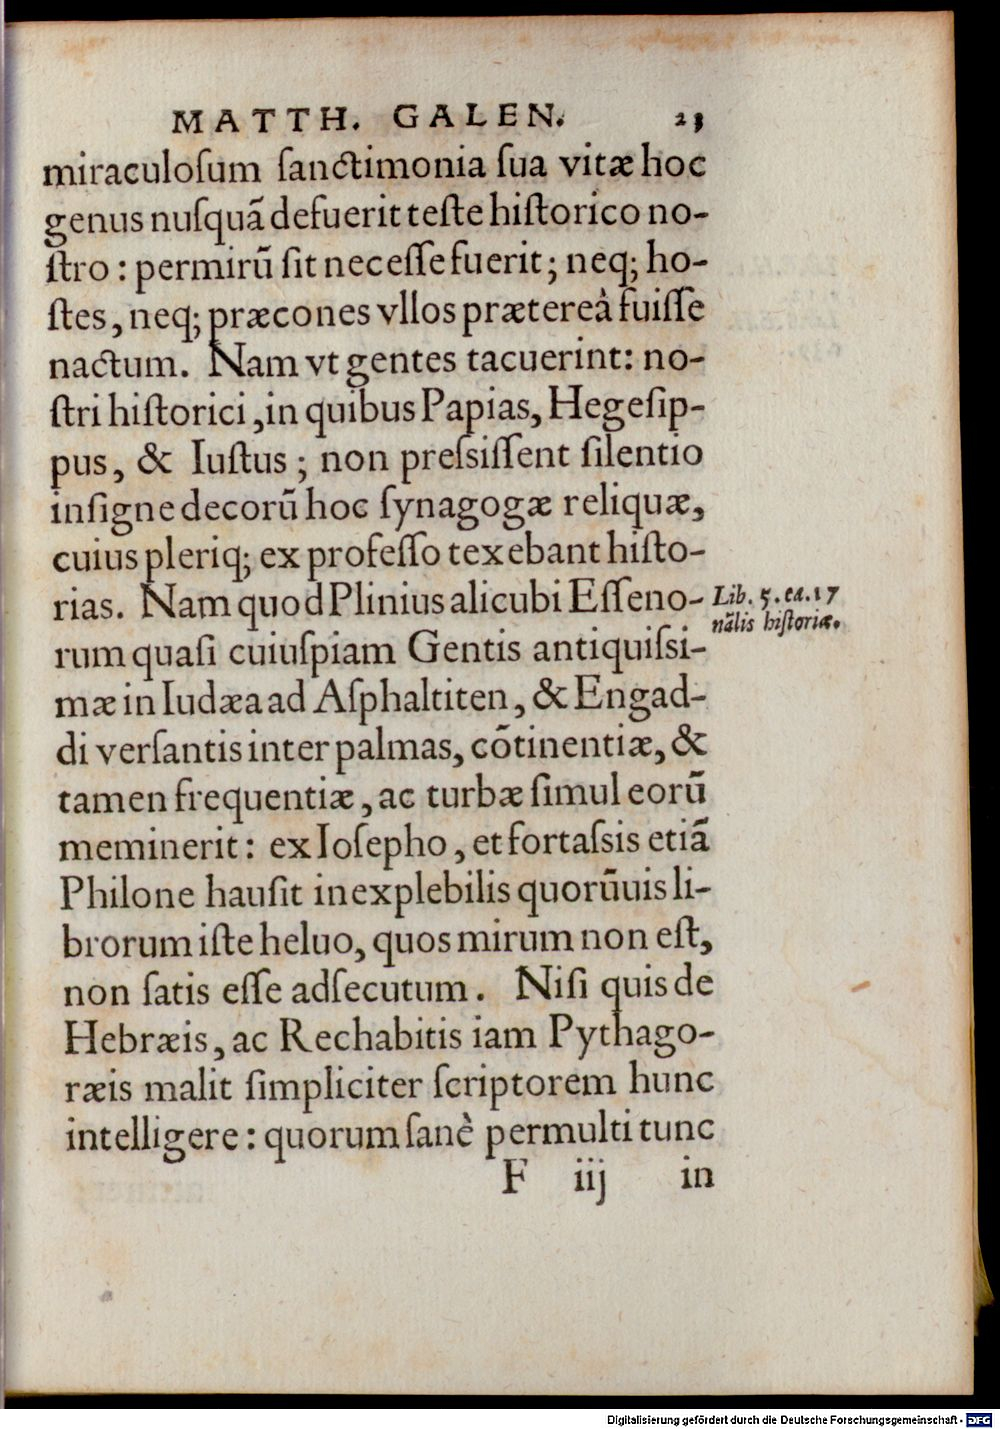 MATTH. GALEN. 23
miraculoſum ſanctimonia ſua vitæ hoc
genus nuſquã defuerit teſte hiſtorico no-
ſtro : permirũ ſit neceſſe fuerit ; neq; ho-
ſtes, neq; præcones vllos prætereà fuiſſe
nactum. Nam vt gentes tacuerint: no-
ſtri hiſtorici, in quibus Papias, Hegeſip-
pus, & Iuſtus ; non preſsiſſent ſilentio
inſigne decorũ hoc ſynagogæ reliquæ,
cuius pleriq; ex profeſſo texebant hiſto-
rias. Nam quod Plinius alicubi Eſſeno-
Lib. 5. ca. 17
nãlis hiſtoriæ.
rum quaſi cuiuſpiam Gentis antiquiſsi-
mæ in Iudæa ad Aſphaltiten, & Engad-
di verſantis inter palmas, cõtinentiæ, &
tamen frequentiæ, ac turbæ ſimul eorũ
meminerit: ex Ioſepho, et fortaſsis etiã
Philone hauſit inexplebilis quorũuis li-
brorum iſte heluo, quos mirum non eſt,
non ſatis eſſe adſecutum. Niſi quis de
Hebræis, ac Rechabitis iam Pythago-
ræis malit ſimpliciter ſcriptorem hunc
intelligere: quorum ſanè permulti tunc
F iij in
Digitalisierung gefördert durch die Deutsche Forschungsgemeinschaft - DFG